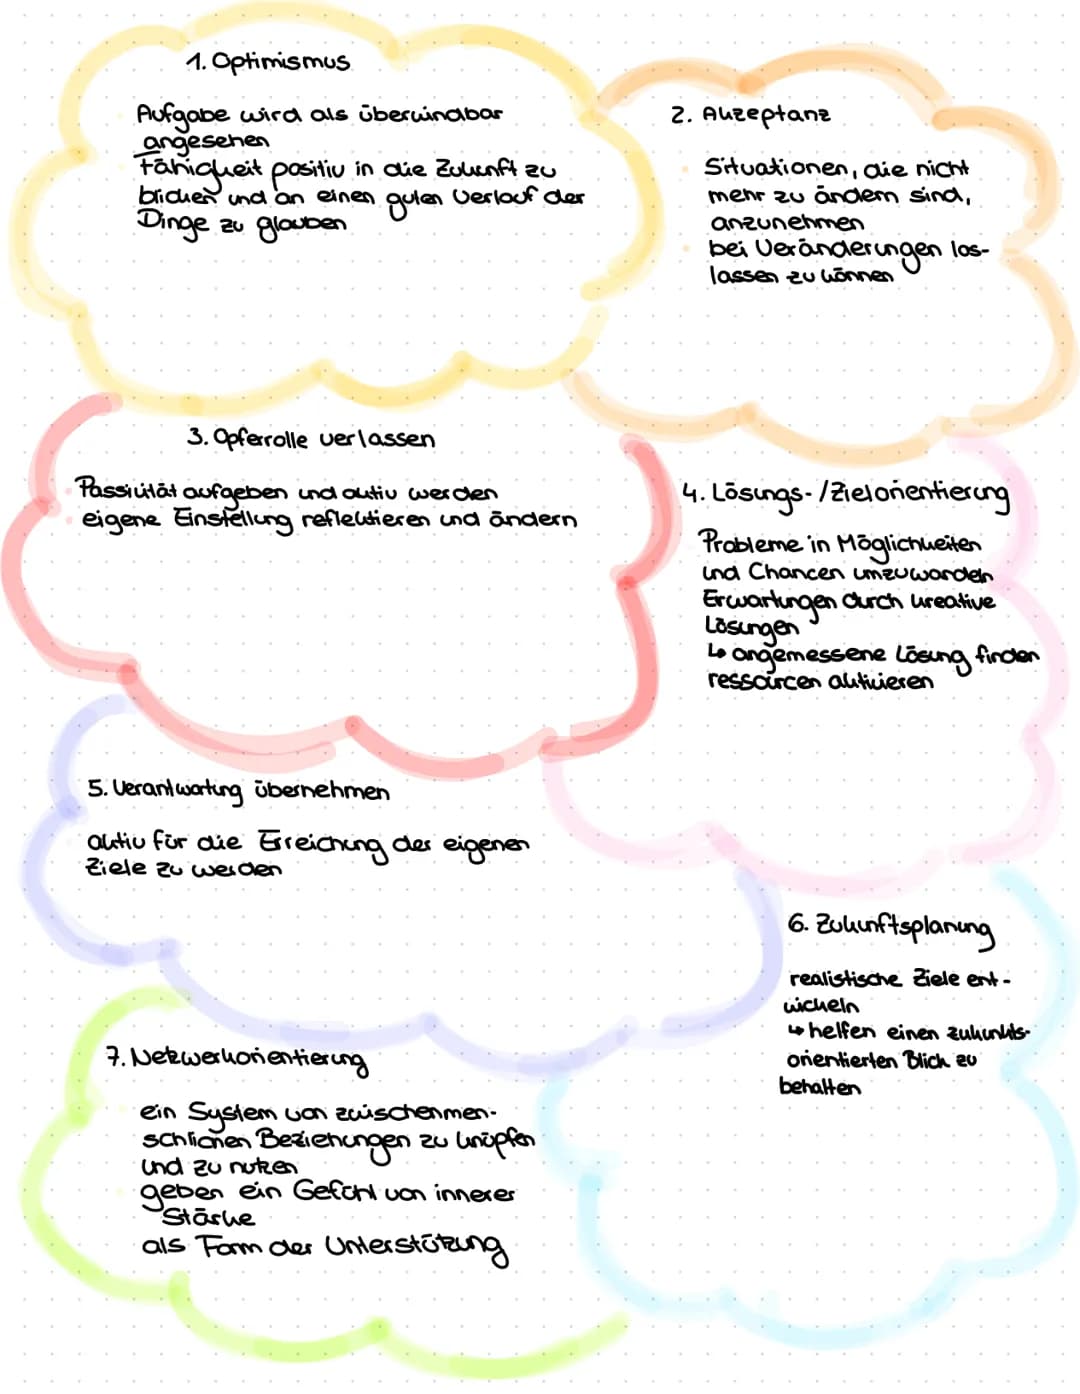 1. Optimismus
Aufgabe wird als überwindbar
angesehen
Fähigkeit positiv in die Zukunft zu
blicken und an einen guten Verlauf der
Dinge zu glauben
2. Akzeptanz
Situationen, die nicht
mehr zu ändern sind,
anzunehmen
bei Veränderungen los-
lassen zu können
3. Opferrolle verlassen
Passivität aufgeben und aktiv werden
eigene Einstellung reflektieren und ändern
4. Lösungs-/Zielorientierung
Probleme in Möglichkeiten
und Chancen umzuwandeln
Erwartungen durch kreative
Lösungen
↳ angemessene Lösung finden
ressourcen aktivieren
5. Verantwortung übernehmen
aktiv für die Erreichung der eigenen
Ziele zu werden
6. Zukunftsplanung
realistische Ziele ent-
wickeln
↳ helfen einen zukunfts-
orientierten Blick zu
behalten
7. Netzwerkorientierung
ein System von zwischenmen-
schlichen Beziehungen zu knüpfen
und zu nutzen
geben ein Gefühl von innerer
Stärke
als Form der Unterstützung